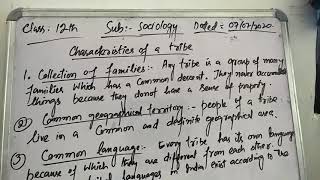 Class: 12th Sub:- Sociology Dated: 07/07/2020
Characteristics of a tribe
1. Collection of families:- Any tribe is a group of many
families which has a common decent. They never accumulate
things because they donot have a sense of property.
2) Common geographical territory:- people of a tribe
live in a common and definite geographical area.
3) Common language:- Every tribe has its own language
because of which they are different from each other.
languages in India exist according to the